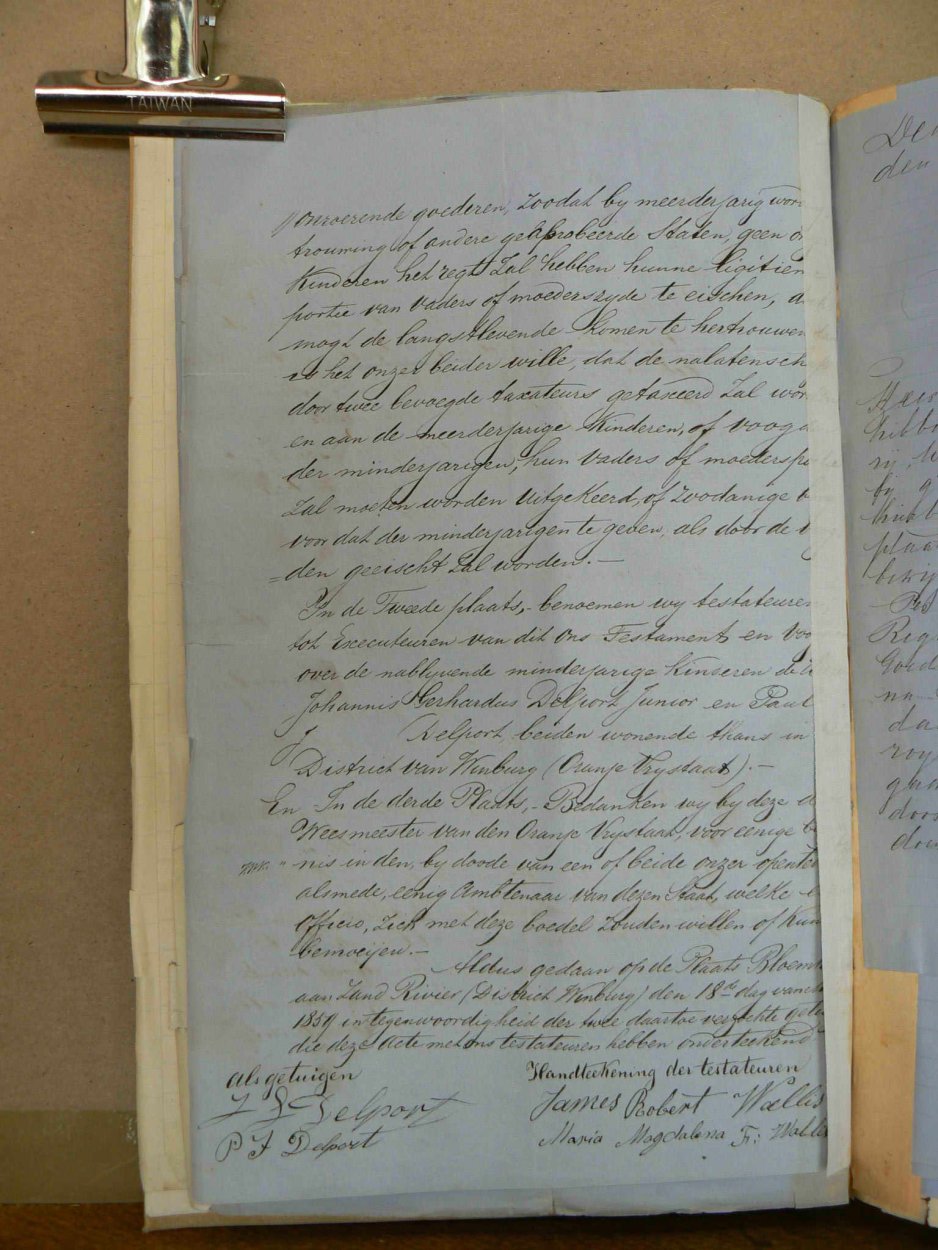 TAIWAN
onroerende goederen, zoodat by meerderjarig word
trouwing of andere geaprobeerde Staten, geen
Kinderen het regt Zal hebben hunne ligitiem
portie van vaders of moederszyde te eischen,
mogt de langstlevende Komen te hertrouwen
is het onzer beider wille, dat de nalatensch
door twee bevoegde taxateurs getaxeerd Zal wor
en aan de meerderjarige Kinderen, of voogd
der minderjarigen, hun vaders of moederspo
Zal moeten worden uitgekeerd, of Zoodanige
voor dat der minderjarigen te geven, als door de
=den geeischt Zal worden.—
In de Tweede plaats,- benoemen wy testateuren
tot Executeuren van dit Ons Testament en Voo
over de nablyvende minderjarige Kinseren de
Johannis Gerhardus Delport Junior en Paul
J Delport beiden wonende thans in
District van Winburg (Oranje Vrystaat).—
En In de derde Plaats,- Bedanken wy by deze d
Weesmeester van den Oranje Vrystaat, voor eenige be
nis in den, by doode van een of beide onzer opente
alsmede, eenig Ambtenaar van dezen Staat, welke
Officio, Zich met deze boedel Zouden willen of Kun
bemoeijen.—
Aldus gedaan op de Plaats Bloem
aan Zand Rivier (District Winburg) den 18de dag van
1859 in tegenwoordigheid der twee daartoe verzochte getu
die deze Acte met ons testateuren hebben onderteekend
als getuigen
Handteekening der testateuren
Delport
James Robert Wallis
P J Delport
Maria Magdalena F: Wallis
De
den
hebbe
by
plaa
bewij
Regt
Goed
na
da
door